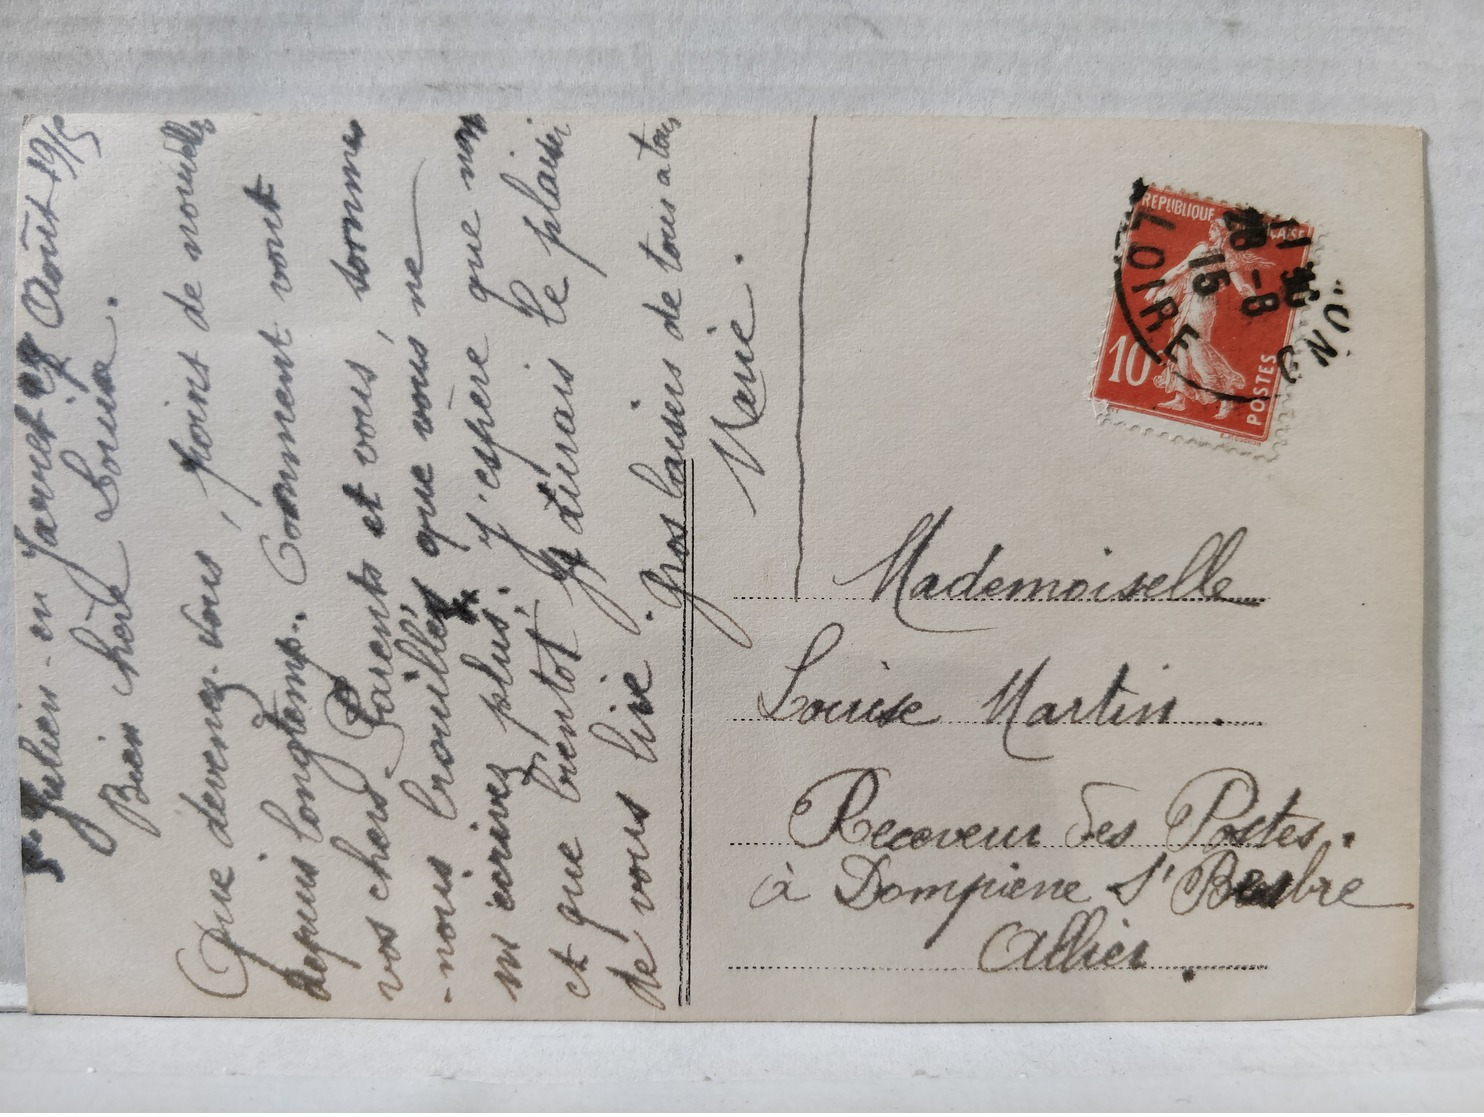 St Julien-en-Jarret 27 Août 1915
Bien chère Louise.
Que devenez-vous, point de nouvelles
depuis longtemps. Comment vont
vos chers Parents et vous, sommes
-nous brouillés que vous ne
m'écrivez plus. J'espère que non
et que bientôt j'aurais le plaisir
de vous lire. Gros baisers de tous à tous
Marie.
REPUBLIQUE
10
POSTES
LOIRE
11 30
28-8
15
Mademoiselle
Louise Martin.
Receveur des Postes.
à Dompierre s' Besbre
Allier.